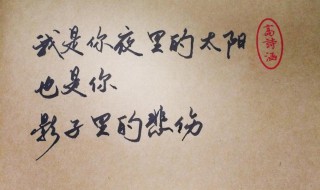 我是你夜里的太阳
也是你
影子里的悲伤
高诗涵